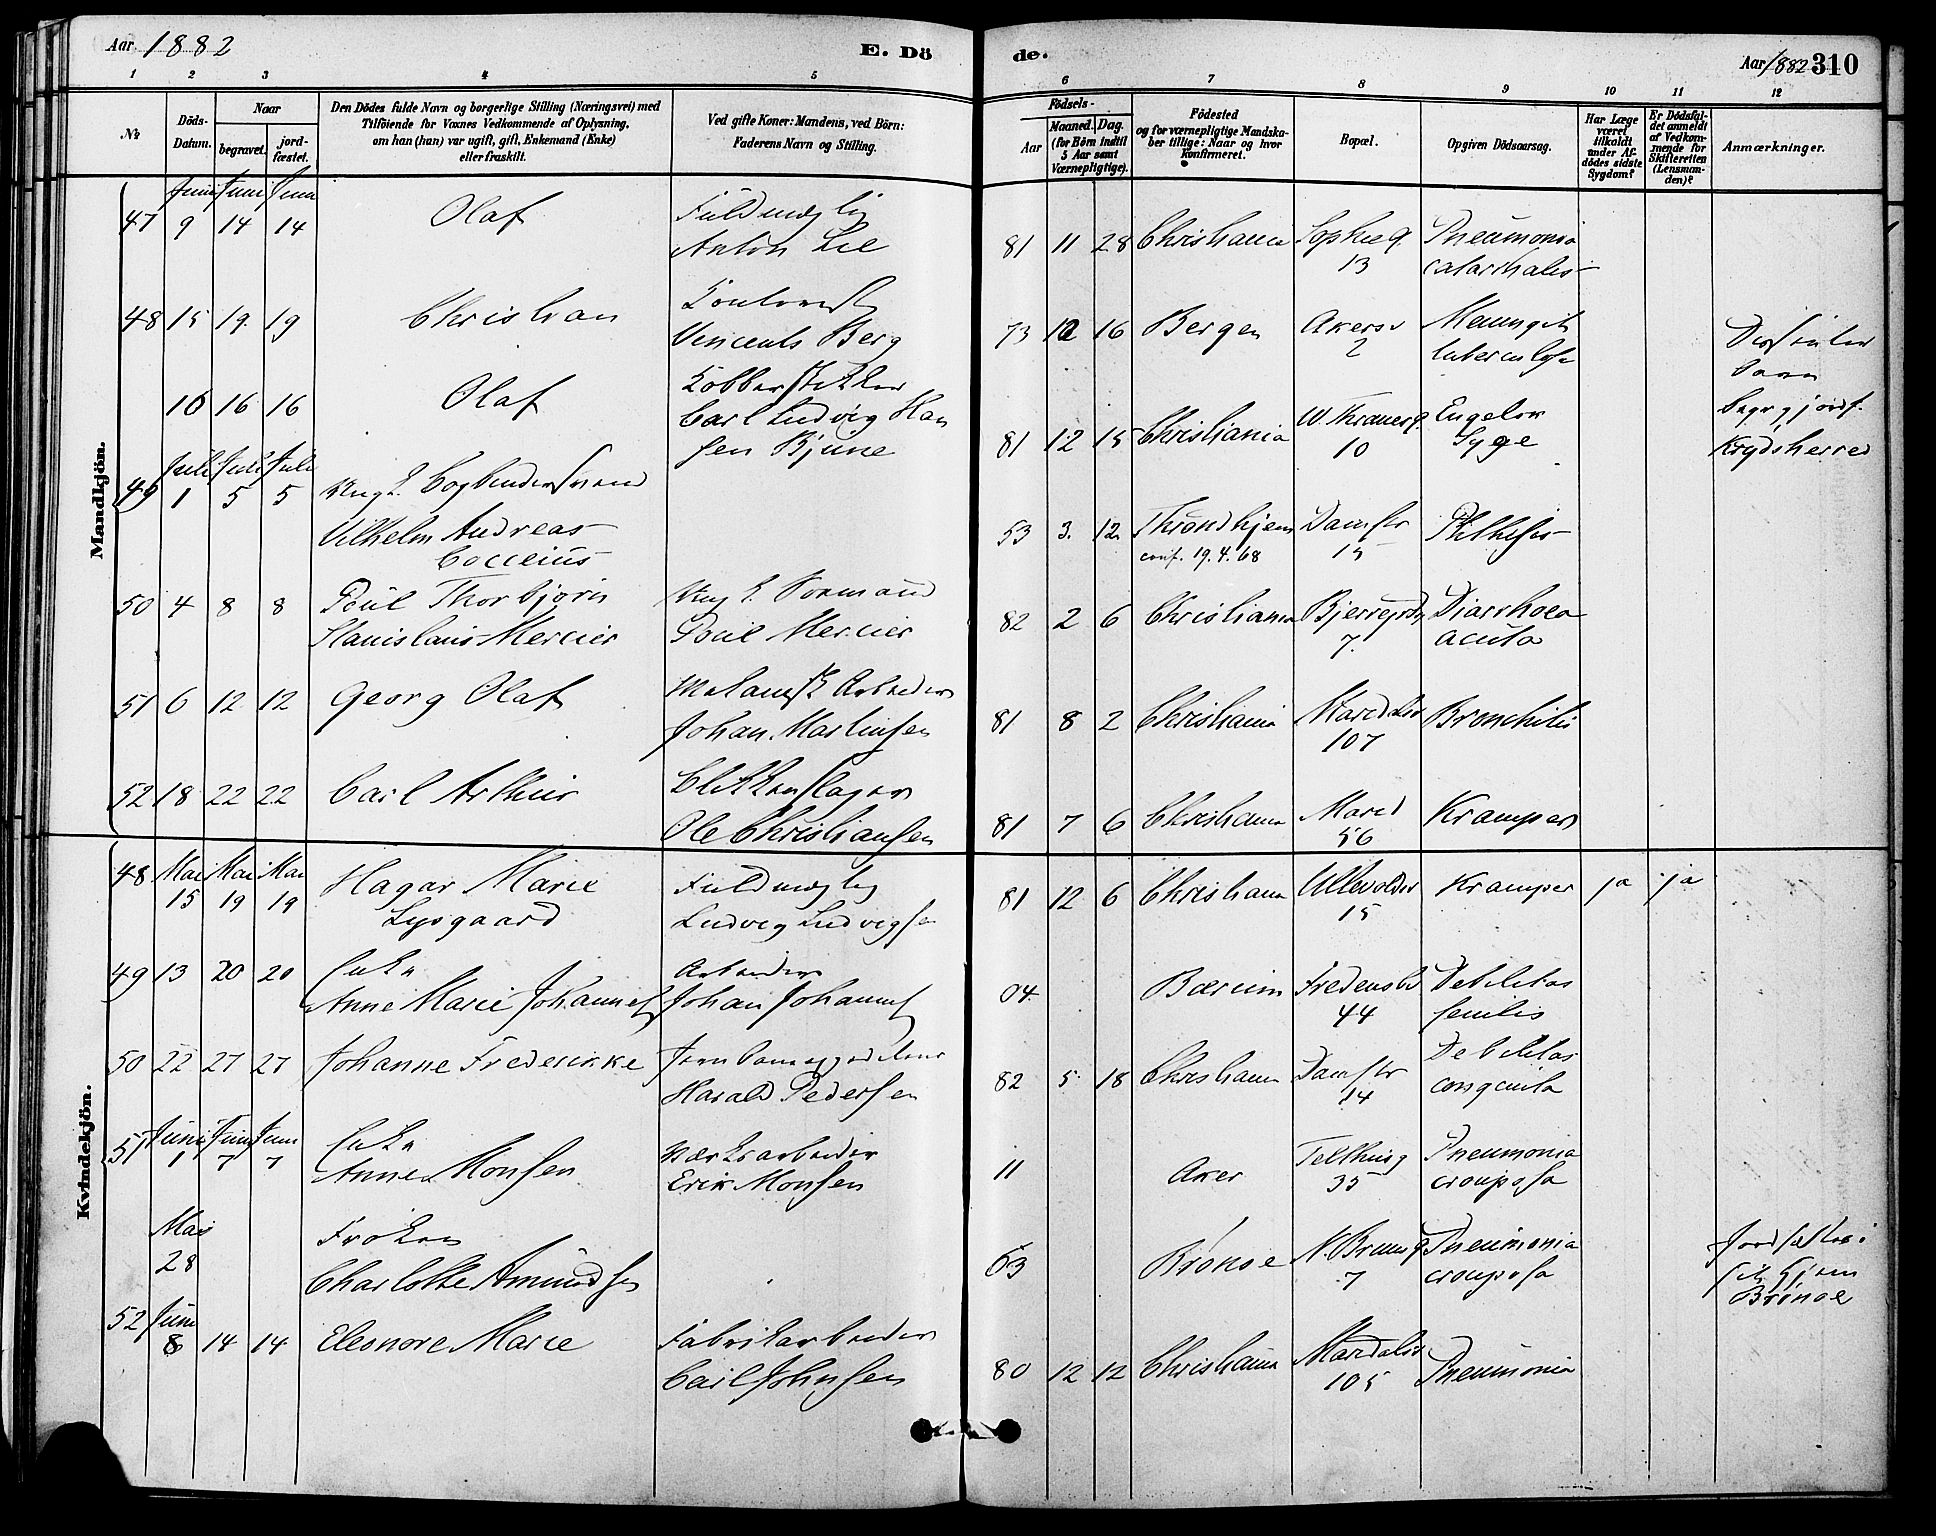 Aar 1882
E. Dö
de.
Aar 1882 310
1 2 3 4 5 6 7 8 9 10 11 12
No
Döds-
Datum.
Naar
begravet.
jord-
fæstet.
Den Dödes fulde Navn og borgerlige Stilling (Næringsvei) med
Tilföiende for Voxnes Vedkommende af Oplysning,
om han (hun) var ugift, gift, Enkemand (Enke)
eller fraskilt.
Ved gifte Koner: Mandens, ved Börn:
Faderens Navn og Stilling.
Födsels-
Aar
Maaned. Dag.
(for Börn indtil
5 Aar samt
Værnepligtige).
Födested
og for værnepligtige Mandska-
ber tillige: Naar og hvor
konfirmeret.
Bopæl.
Opgiven Dödsaarsag.
Har Læge
været
tilkaldt
under Af-
dödes sidste
Sygdom?
Er Dödsfal-
det anmeldt
af Vedkom-
mende for
Skifteretten
(Lensman-
den)?
Anmærkninger.
Mandkjön.
Juni Juni Juni
47 9 14 14 Olaf
Fuldmægtig
Anton Lie
81 11 28 Christiania Sophieg. Pneumonia
13 catarrhalis
48 15 19. 19 Christian
Vincents Berg
73 10 16 Bergen Akersv
2 tuberculosa
10 16 16 Olaf
Kobberstikker
Carl Ludvig Han
sen Bjune
81 12 15 Christiania W. Thranesg. Engelsk
10 Syge
Krydsherred
Juli Juli Juli
49 1 5 5
Vilhelm Andreas
Cocceius
53 3. 12 Throndhjem Damstr Phthisis
conf. 19.4.68 15
50 4 8 8 Poul Thorbjørn
Stanislaus Mercier
Poul Mercier
82 2 6 Christiania Bjerregrdg Diarrhoea
7. acuta
51 6 12 12 Georg Olaf
Johan Martinsen
81 8 2 Christiania Maridalsv Bronchitis
107
52 18 22 22 Carl Arthur
Blikkenslager
Ole Christiansen
81 7 6 Christiania Marid Kramper
56
Kvindekjön.
48 Mai Mai Mai Hagar Marie
15 19 19 Lysgaard
Fuldmægtig
Ludvig Ludvigsen
81 12 6 Christiania Ullevoldsv Kramper ja ja
15
49 13 20 20 Enke
Anne Marie Johannes
Arbeider
Johan Johannes
04. Bærum Fredensbv Debilitas
44 senilis
50 22 27 27 Johanne Frederikke
Harald Pedersen
82 5 18 Christiania Damstr Debilitas
14 congenita
51 Juni Juni Juni Enke
1 7 7 Anne Monsen
Værksarbeider
Erik Monsen
11 Aker Telthusg Pneumonia
35 crouposa
Mai
28
Frøken
Charlotte Amundsen
63 Brønoe N. Brunsg Pneumonia
7 crouposa
Brønoe
52 Juni
8 14 14 Eleonore Marie
Fabrikarbeider
Carl Johnsen
80 12 12 Christiania Maridalsv Pneumonia
105